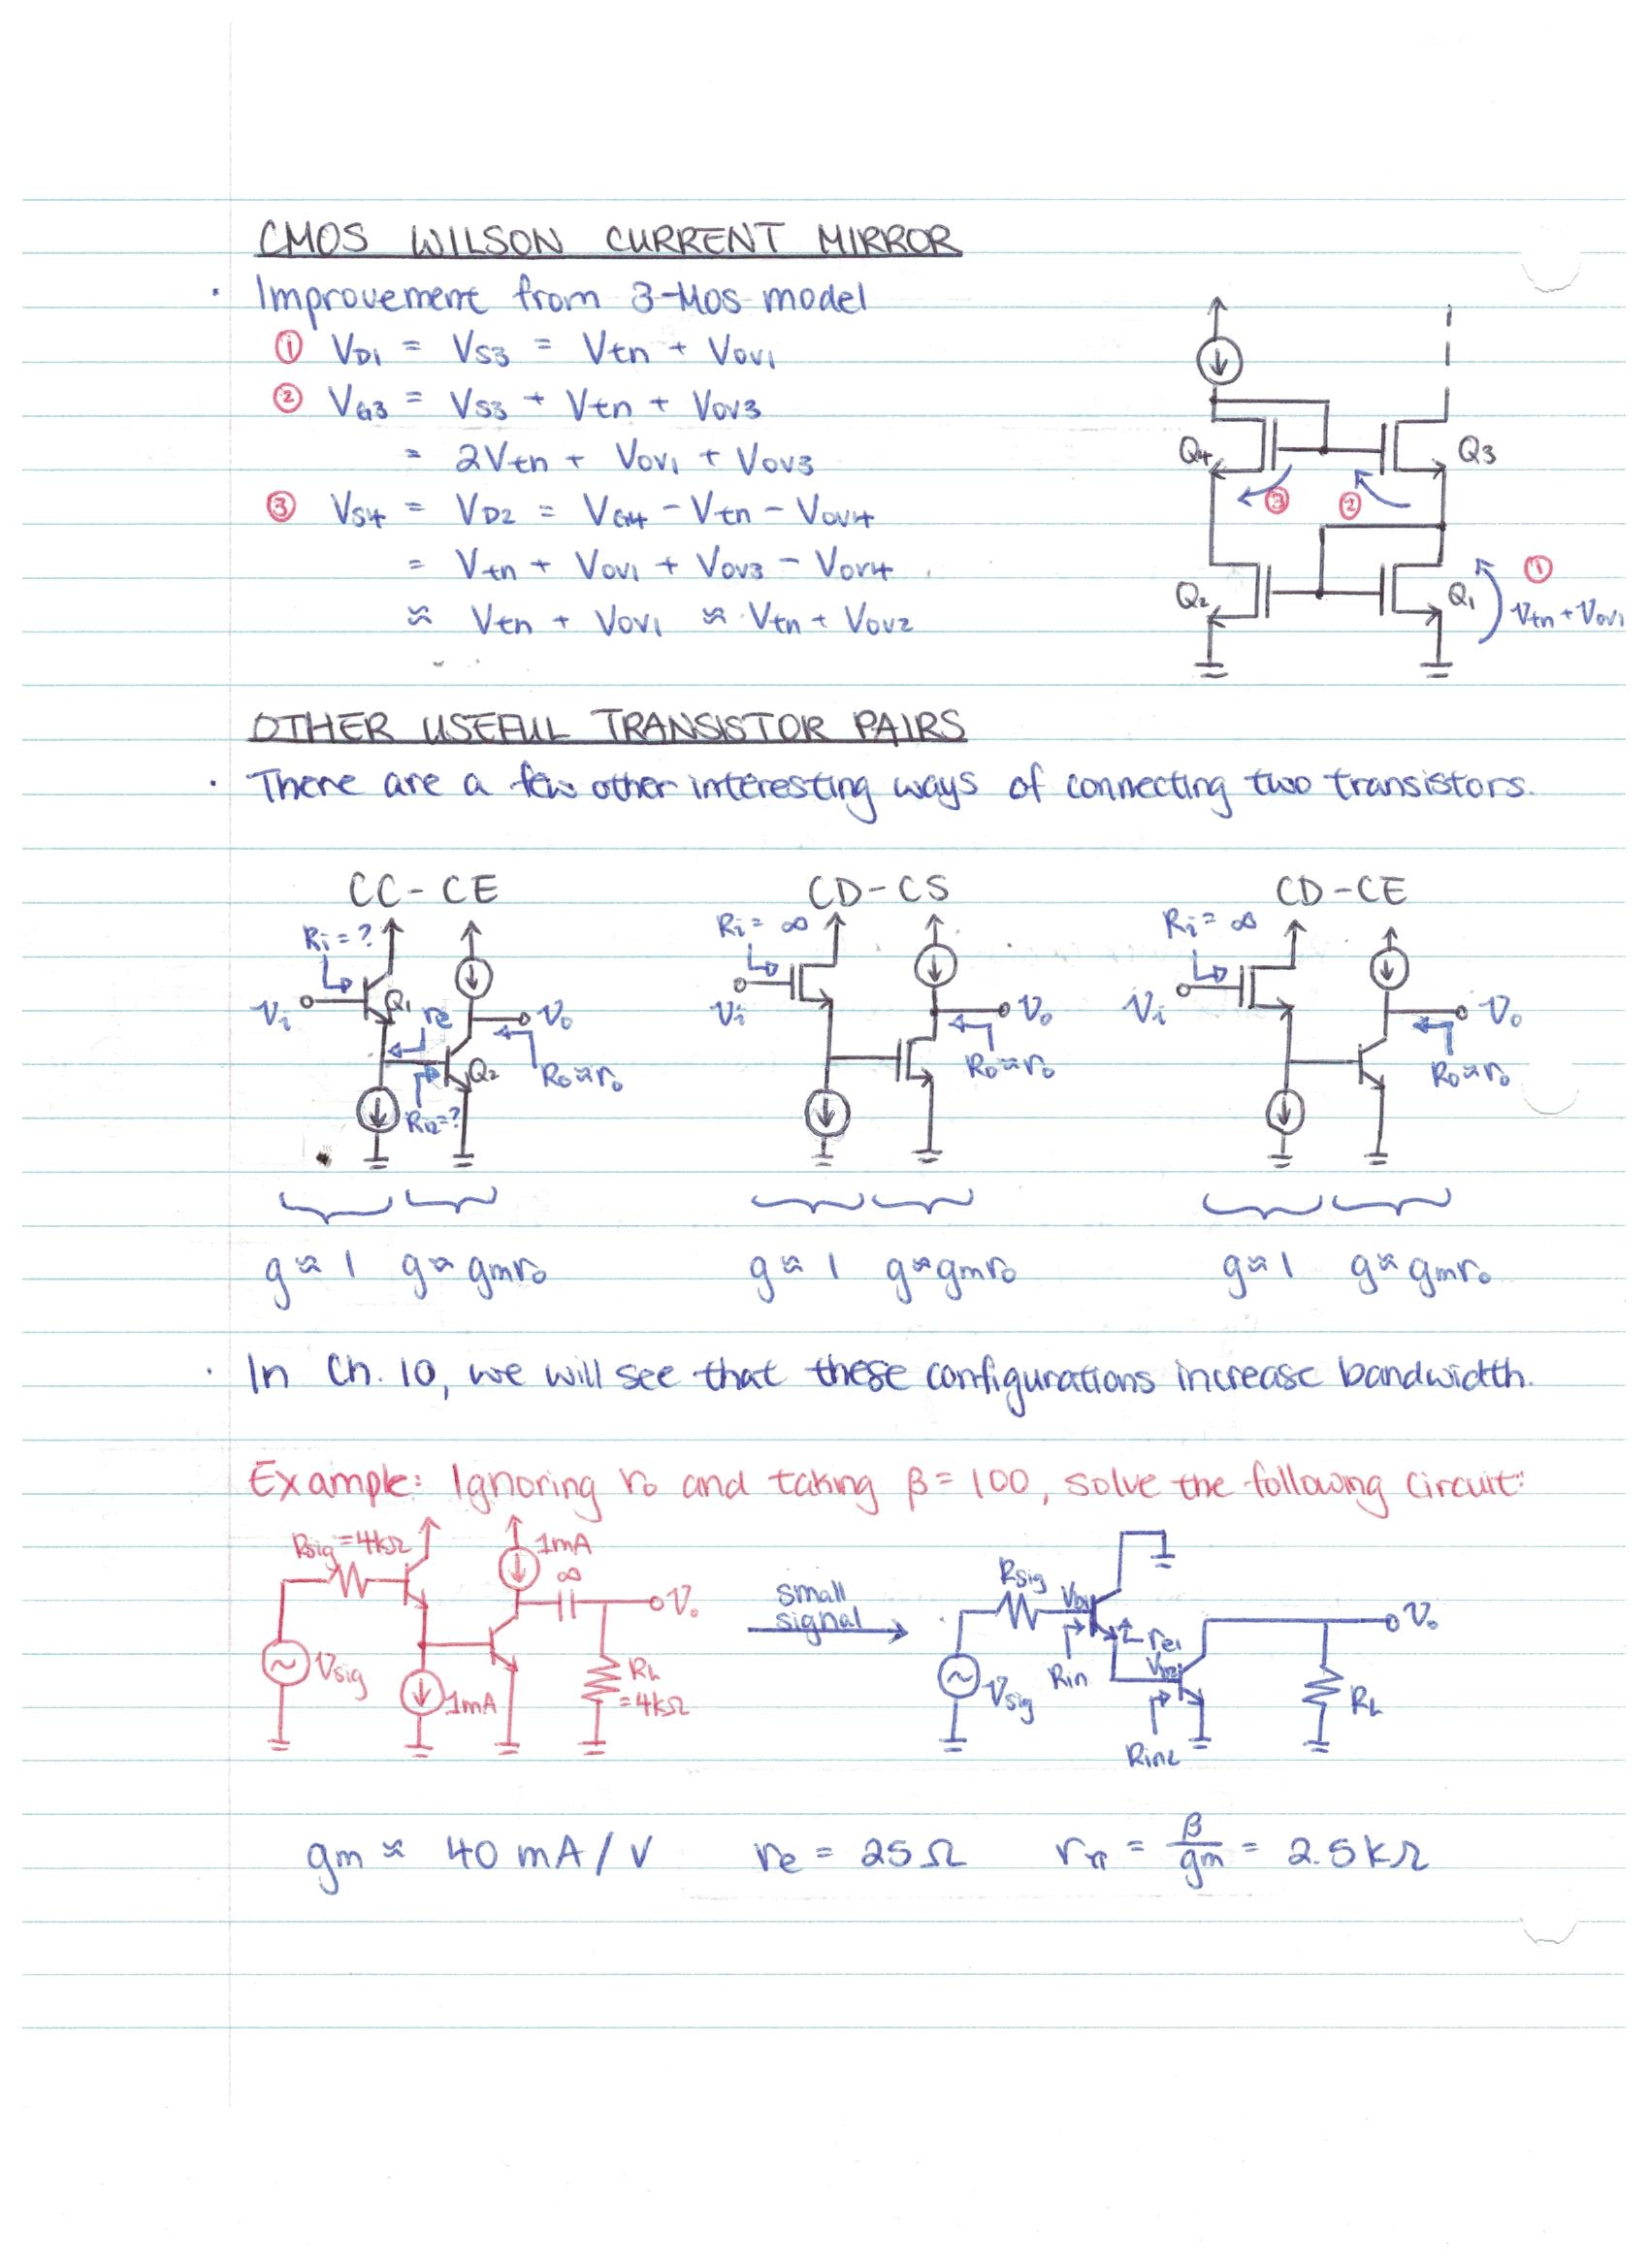 CMOS WILSON CURRENT MIRROR
· Improvement from 3-MOS model
① VD1 = VS3 = Vtn + VOV1
② VG3 = VS3 + Vtn + VOV3
= 2Vtn + VOV1 + VOV3
③ VS4 = VD2 = VG4 - Vtn - VOV4
= Vtn + VOV1 + VOV3 - VOV4
≈ Vtn + VOV1 ≈ Vtn + VOV2
Q4 Q3
③ ②
Q2 Q1 ①
Vtn + VOV1
OTHER USEFUL TRANSISTOR PAIRS
· There are a few other interesting ways of connecting two transistors.
CC-CE CD-CS CD-CE
Ri = ? Ri = ∞ Ri = ∞
Vi Q1 re Vo Vi Vo Vi Vo
Q2 Ro≈ro Ro≈ro Ro≈ro
Ri2=?
g ≈ 1 g ≈ gmro g ≈ 1 g ≈ gmro g ≈ 1 g ≈ gmro
· In Ch. 10, we will see that these configurations increase bandwidth.
Example: Ignoring ro and taking β = 100, solve the following circuit:
Rsig = 4kΩ 1mA
∞
Vo
Vsig 1mA RL
= 4kΩ
small
signal
Rsig Vb1 Vo
Rin re1 Vb2
Vsig Rin2 RL
gm ≈ 40 mA/V re = 25Ω rπ = β/gm = 2.5kΩ